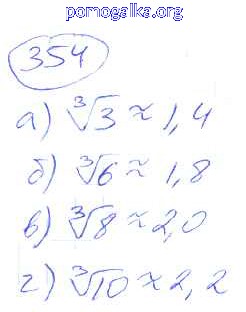 pomogalka.org
354
а) ∛3 ≈ 1,4
б) ∛6 ≈ 1,8
в) ∛8 ≈ 2,0
г) ∛10 ≈ 2,2